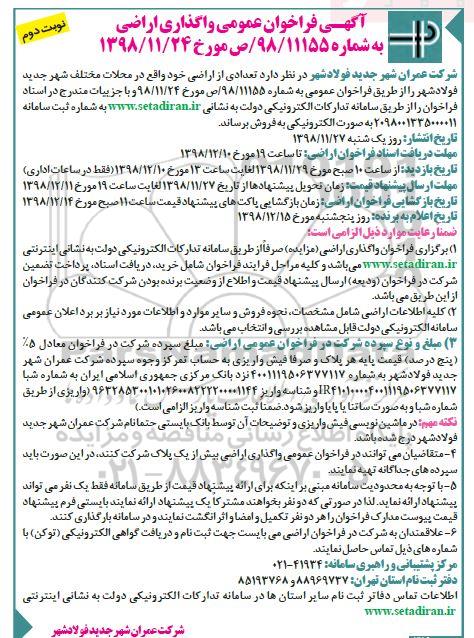 نوبت دوم
آگهی فراخوان عمومی واگذاری اراضی
به شماره ۹۸/۱۱۱۵۵/ص مورخ ۱۳۹۸/۱۱/۲۴
شرکت عمران شهر جدید فولادشهر در نظر دارد تعدادی از اراضی خود واقع در محلات مختلف شهر جدید
فولادشهر را از طریق فراخوان عمومی به شماره ۹۸/۱۱۱۵۵/ص مورخ ۹۸/۱۱/۲۴ و با جزییات مندرج در اسناد
فراخوان را از طریق سامانه تدارکات الکترونیکی دولت به نشانی www.setadiran.ir به شماره ثبت سامانه
به صورت الکترونیکی به فروش برساند.
تاریخ انتشار: روز یک شنبه ۱۳۹۸/۱۱/۲۷
مهلت دریافت اسناد فراخوان اراضی: تا ساعت ۱۹ مورخ ۱۳۹۸/۱۲/۱۰
تاریخ بازدید: از ساعت ۱۰ صبح مورخ ۱۳۹۸/۱۱/۲۹ لغایت ساعت ۱۳ مورخ ۱۳۹۸/۱۲/۱۰ (فقط در ساعات اداری)
مهلت ارسال پیشنهاد قیمت: زمان تحویل پیشنهادها از تاریخ ۱۳۹۸/۱۱/۲۷ لغایت ساعت ۱۹ مورخ ۱۳۹۸/۱۲/۱۱
تاریخ بازگشایی فراخوان اراضی: زمان بازگشایی پاکت های پیشنهاد قیمت ساعت ۱۱ صبح مورخ ۱۳۹۸/۱۲/۱۴
تاریخ اعلام به برنده: روز پنجشنبه مورخ ۱۳۹۸/۱۲/۱۵
ضمنا رعایت موارد ذیل الزامی است:
۱) برگزاری فراخوان واگذاری اراضی (مزایده) صرفاً از طریق سامانه تدارکات الکترونیکی دولت به نشانی اینترنتی
www.setadiran.ir می باشد و کلیه مراحل فرایند فراخوان شامل خرید، دریافت اسناد، پرداخت تضمین
شرکت در فراخوان (ودیعه) ارسال پیشنهاد قیمت و اطلاع از وضعیت برنده بودن شرکت کنندگان در فراخوان
از این طریق می باشد.
۲) کلیه اطلاعات اراضی شامل مشخصات، نحوه فروش و سایر موارد و اطلاعات مورد نیاز بر برد اعلان عمومی
سامانه الکترونیکی دولت قابل مشاهده بررسی و انتخاب می باشد.
۳) مبلغ و نوع سپرده شرکت در فراخوان عمومی اراضی: مبلغ سپرده شرکت در فراخوان معادل ۵٪
(پنج درصد) قیمت پایه هر پلاک و صرفا فیش واریزی به حساب تمرکز وجوه سپرده شرکت عمران شهر
جدید فولادشهر به شماره ۴۰۰۱۱۱۹۵۰۶۳۷۷۱۱۷ نزد بانک مرکزی جمهوری اسلامی ایران به شماره شبا
و شناسه واریز (واریزی از طریق
شماره شبا و به صورت ساتنا یا پایا واریز شود ضمنا ثبت شناسه واریز الزامی است.)
نکته مهم: در ماشین نویسی فیش واریزی و توضیحات آن توسط بانک بایستی حتما نام شرکت عمران شهر جدید
فولادشهر درج شده باشد.
۴-متقاضیان می توانند در فراخوان عمومی واگذاری اراضی بیش از یک پلاک شرکت کنند، در این صورت باید
سپرده های جداگانه تهیه نمایند.
۵-با توجه به محدودیت سامانه مبنی بر اینکه برای ارائه پیشنهاد قیمت از طریق سامانه فقط یک نفر می تواند
پیشنهاد ارائه نماید. لذا در صورتی که دو نفر بخواهند مشترکا یک پیشنهاد ارائه نمایند بایستی فرم پیشنهاد
قیمت پیوست مدارک فراخوان را هر دو نفر تکمیل و امضا و اثر انگشت نمایند و در سامانه بارگذاری کنند.
۶-علاقمندان به شرکت در فراخوان اراضی می بایست جهت ثبت نام و دریافت گواهی الکترونیکی (توکن) با
شماره های ذیل تماس حاصل نمایند.
مرکز پشتیبانی و راهبری سامانه: ۴۱۹۳۴-۰۲۱
دفتر ثبت نام استان تهران: ۸۸۹۶۹۷۳۷ و ۸۵۱۹۳۷۶۸
اطلاعات تماس دفاتر ثبت نام سایر استان ها در سامانه تدارکات الکترونیکی دولت به نشانی اینترنتی
www.setadiran.ir
شرکت عمران شهر جدید فولادشهر